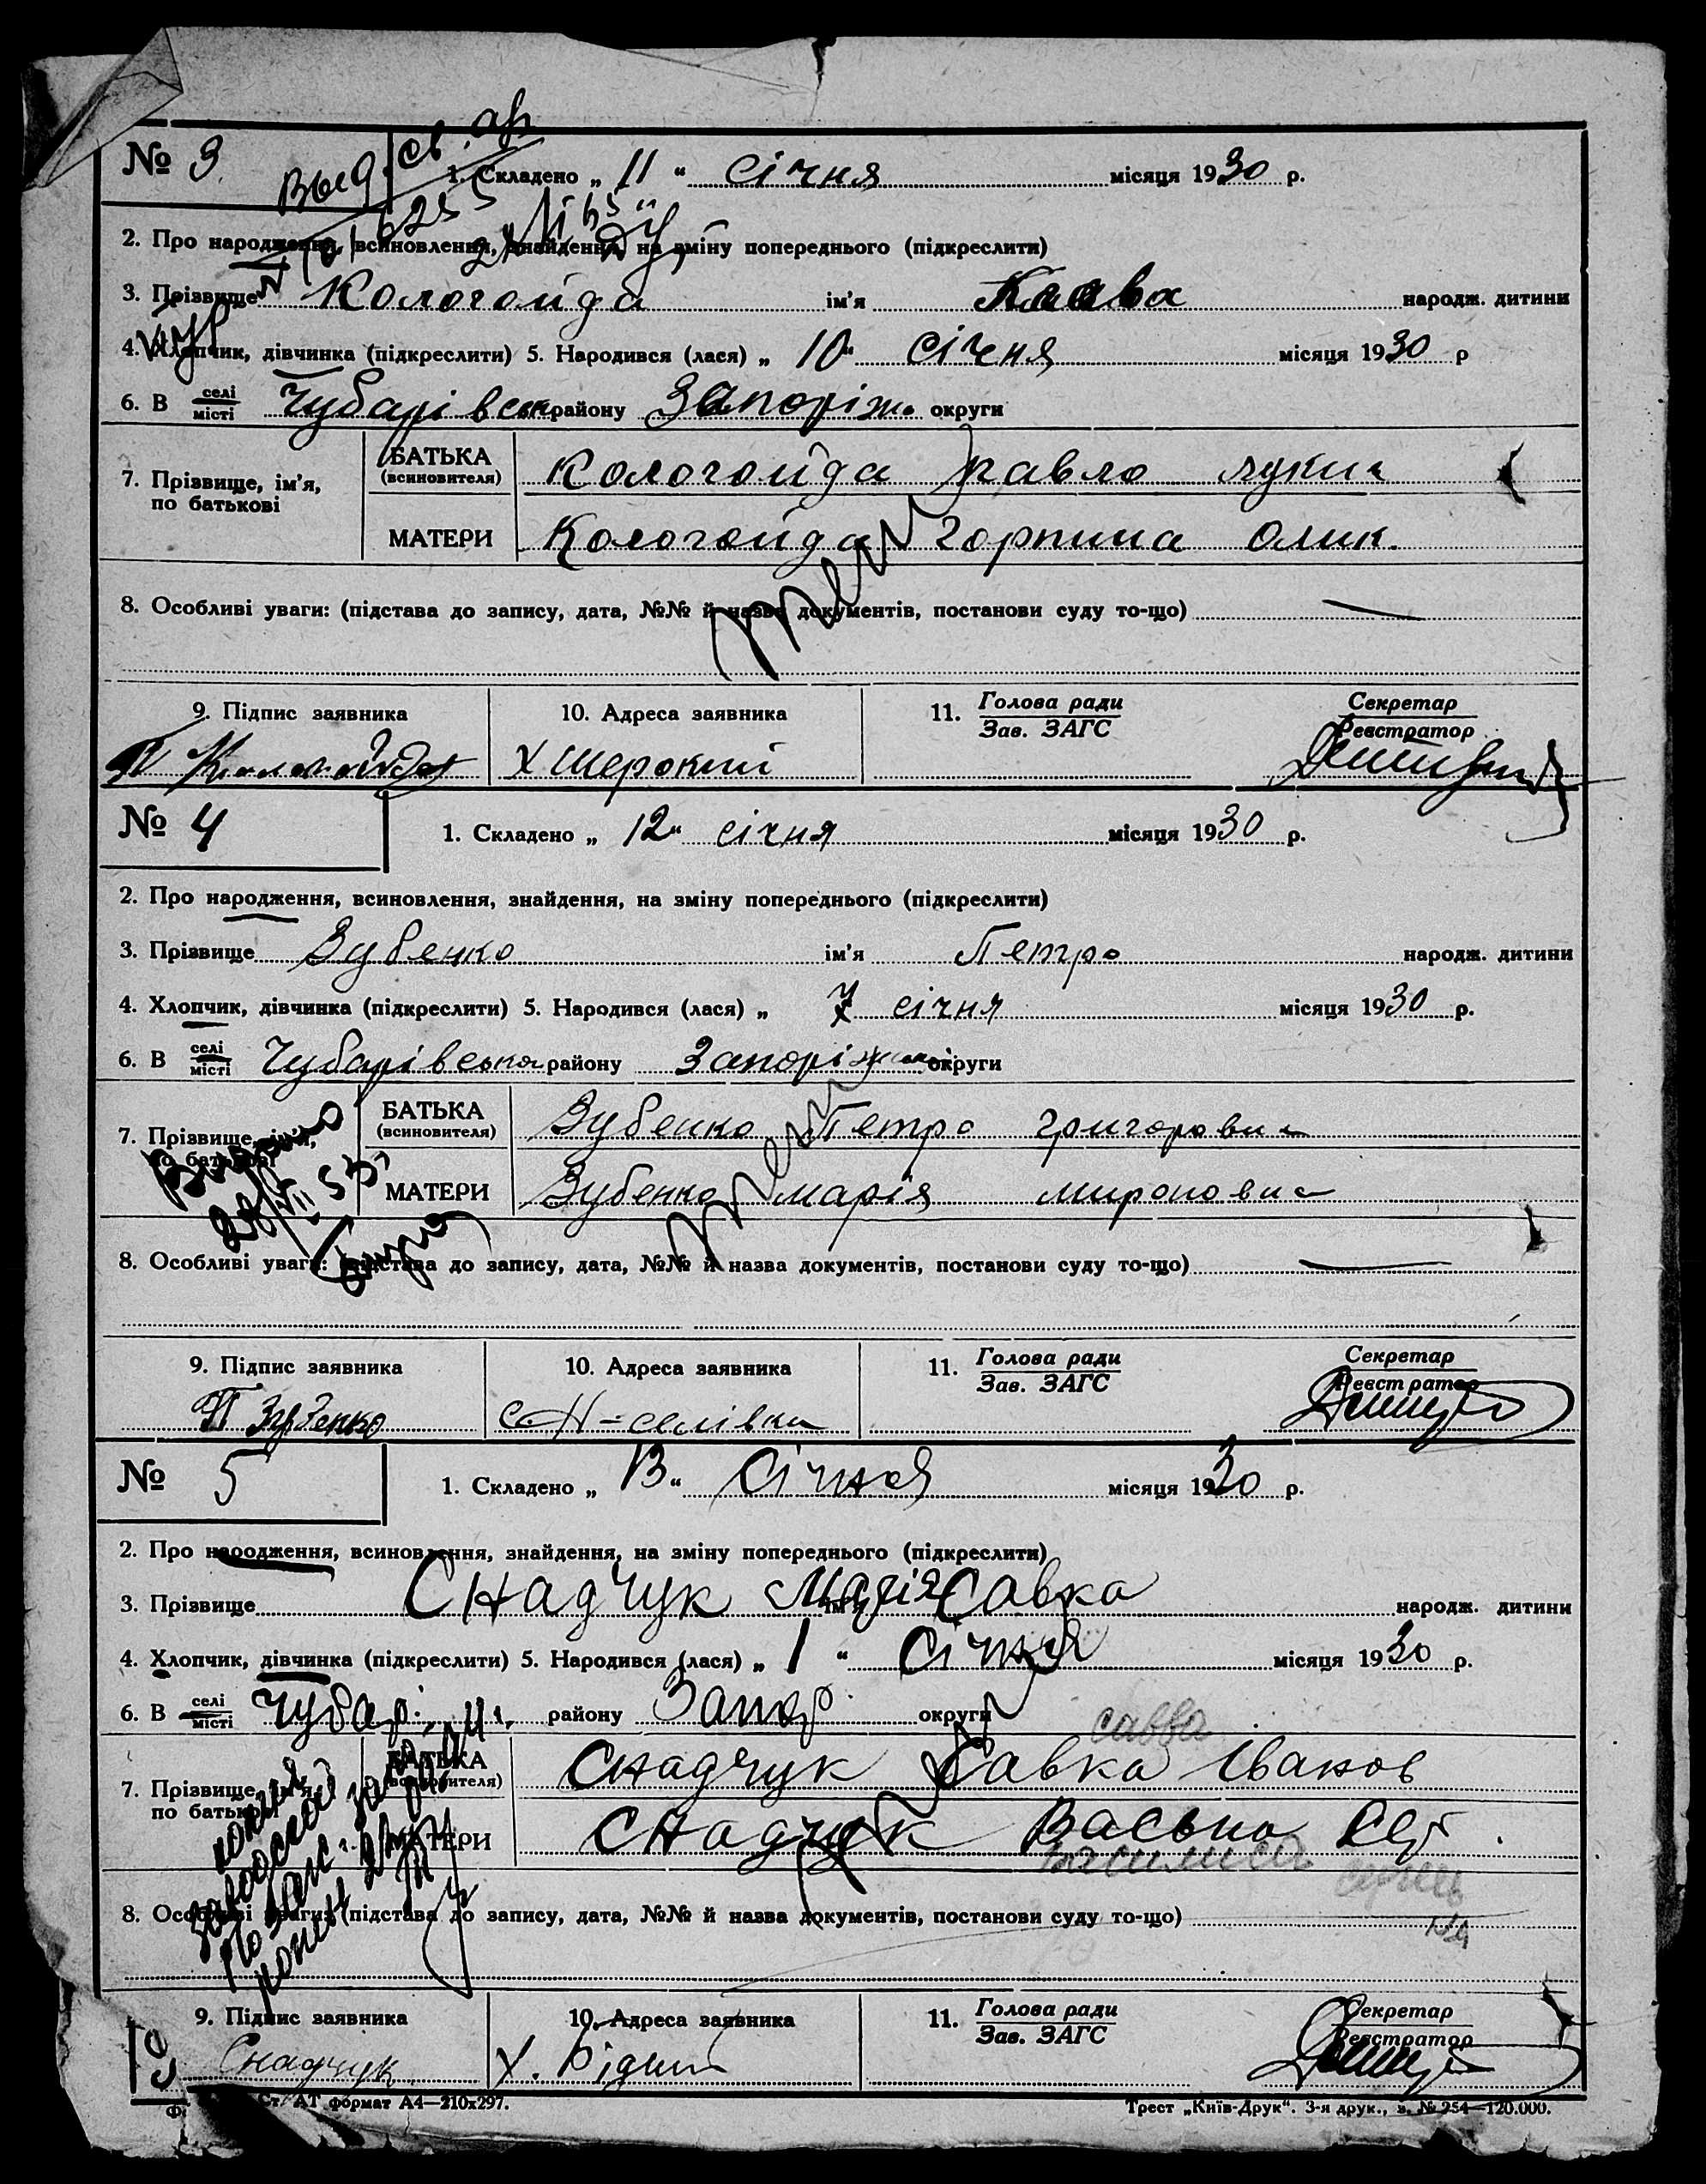 № 3. Выд. св.
1. Складено „ 11 “ січня місяця 1930 р.
2. Про народження, всиновлення, знайдення, на зміну попереднього (підкреслити)
3. Прізвище Кологойда ім'я Клава народж. дитини
4. Хлопчик, дівчинка (підкреслити) 5. Народився (лася) „ 10 “ січня місяця 1930 р
6. В селі/місті Чубарівськ району Запоріж. округи
7. Прізвище, ім'я, по батькові
БАТЬКА (всиновителя) Кологойда Павло Луки
МАТЕРИ Кологойда Горпина Олик.
8. Особливі уваги: (підстава до запису, дата, №№ й назва документів, постанови суду то-що) —
9. Підпис заявника 10. Адреса заявника 11. Голова ради Секретар
Зав. ЗАГС Реєстратор
П Кологойда х Широкий
№ 4 1. Складено „ 12 “ січня місяця 1930 р.
2. Про народження, всиновлення, знайдення, на зміну попереднього (підкреслити)
3. Прізвище Зубенко ім'я Петро народж. дитини
4. Хлопчик, дівчинка (підкреслити) 5. Народився (лася) „ 7 січня місяця 1930 р.
6. В селі/місті Чубарівська району Запоріж округи
7. Прізвище, ім'я, по батькові
БАТЬКА (всиновителя) Зубенко Петро Григорови
МАТЕРИ Зубенко Марія Мироновна
Видано
8. Особливі уваги: (підстава до запису, дата, №№ й назва документів, постанови суду то-що) —
9. Підпис заявника 10. Адреса заявника 11. Голова ради Секретар
Зав. ЗАГС Реєстратор
П Зубенко с Н=селівка
№ 5 1. Складено „ 13 “ Січня місяця 1930 р.
2. Про народження, всиновлення, знайдення, на зміну попереднього (підкреслити)
3. Прізвище Снадчук Марія Савка ім'я народж. дитини
4. Хлопчик, дівчинка (підкреслити) 5. Народився (лася) „ 1 “ Січня місяця 1930 р.
6. В селі/місті Чубар. району Запор. округи
савва
7. Прізвище, ім'я, по батькові
БАТЬКА (всиновителя) Снадчук Савка Іванов
МАТЕРИ Снадчук Васьна
Василиса
8. Особливі уваги: (підстава до запису, дата, №№ й назва документів, постанови суду то-що)
9. Підпис заявника 10. Адреса заявника 11. Голова ради Секретар
Зав. ЗАГС Реєстратор
Снадчук х. Рідний
Ст. АТ формат А4—210х297. Трест „Київ-Друк“. 3-я друк., з. № 254—120.000.